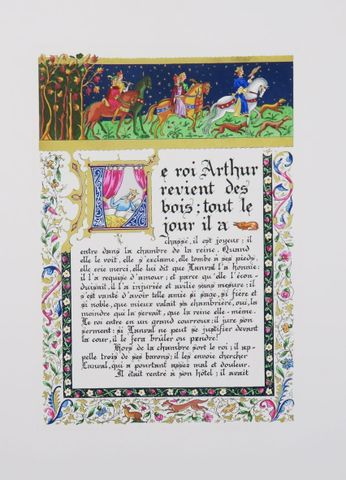 Le roi Arthur
revient des
bois ; tout le
jour il a
chassé, il est joyeux ; il
entre dans la chambre de la reine. Quand
elle le voit, elle s'exclame, elle tombe à ses pieds,
elle crie merci, elle lui dit que Lanval l'a honnie :
il l'a requise d'amour ; et parce qu'elle l'écon-
duisait, il l'a injuriée et avilie sans mesure : il
s'est vanté d'avoir telle amie si sage, si fière et
si noble, que mieux valait sa chambrière, oui, la
moindre qui la servait, que la reine elle-même.
Le roi entre en un grand courroux ; il jure son
serment : si Lanval ne peut se justifier devant
la cour, il le fera brûler ou pendre !
Hors de la chambre sort le roi ; il ap-
pelle trois de ses barons ; il les envoie chercher
Lanval, qui a pourtant assez mal et douleur.
Il était rentré à son hôtel ; il avait